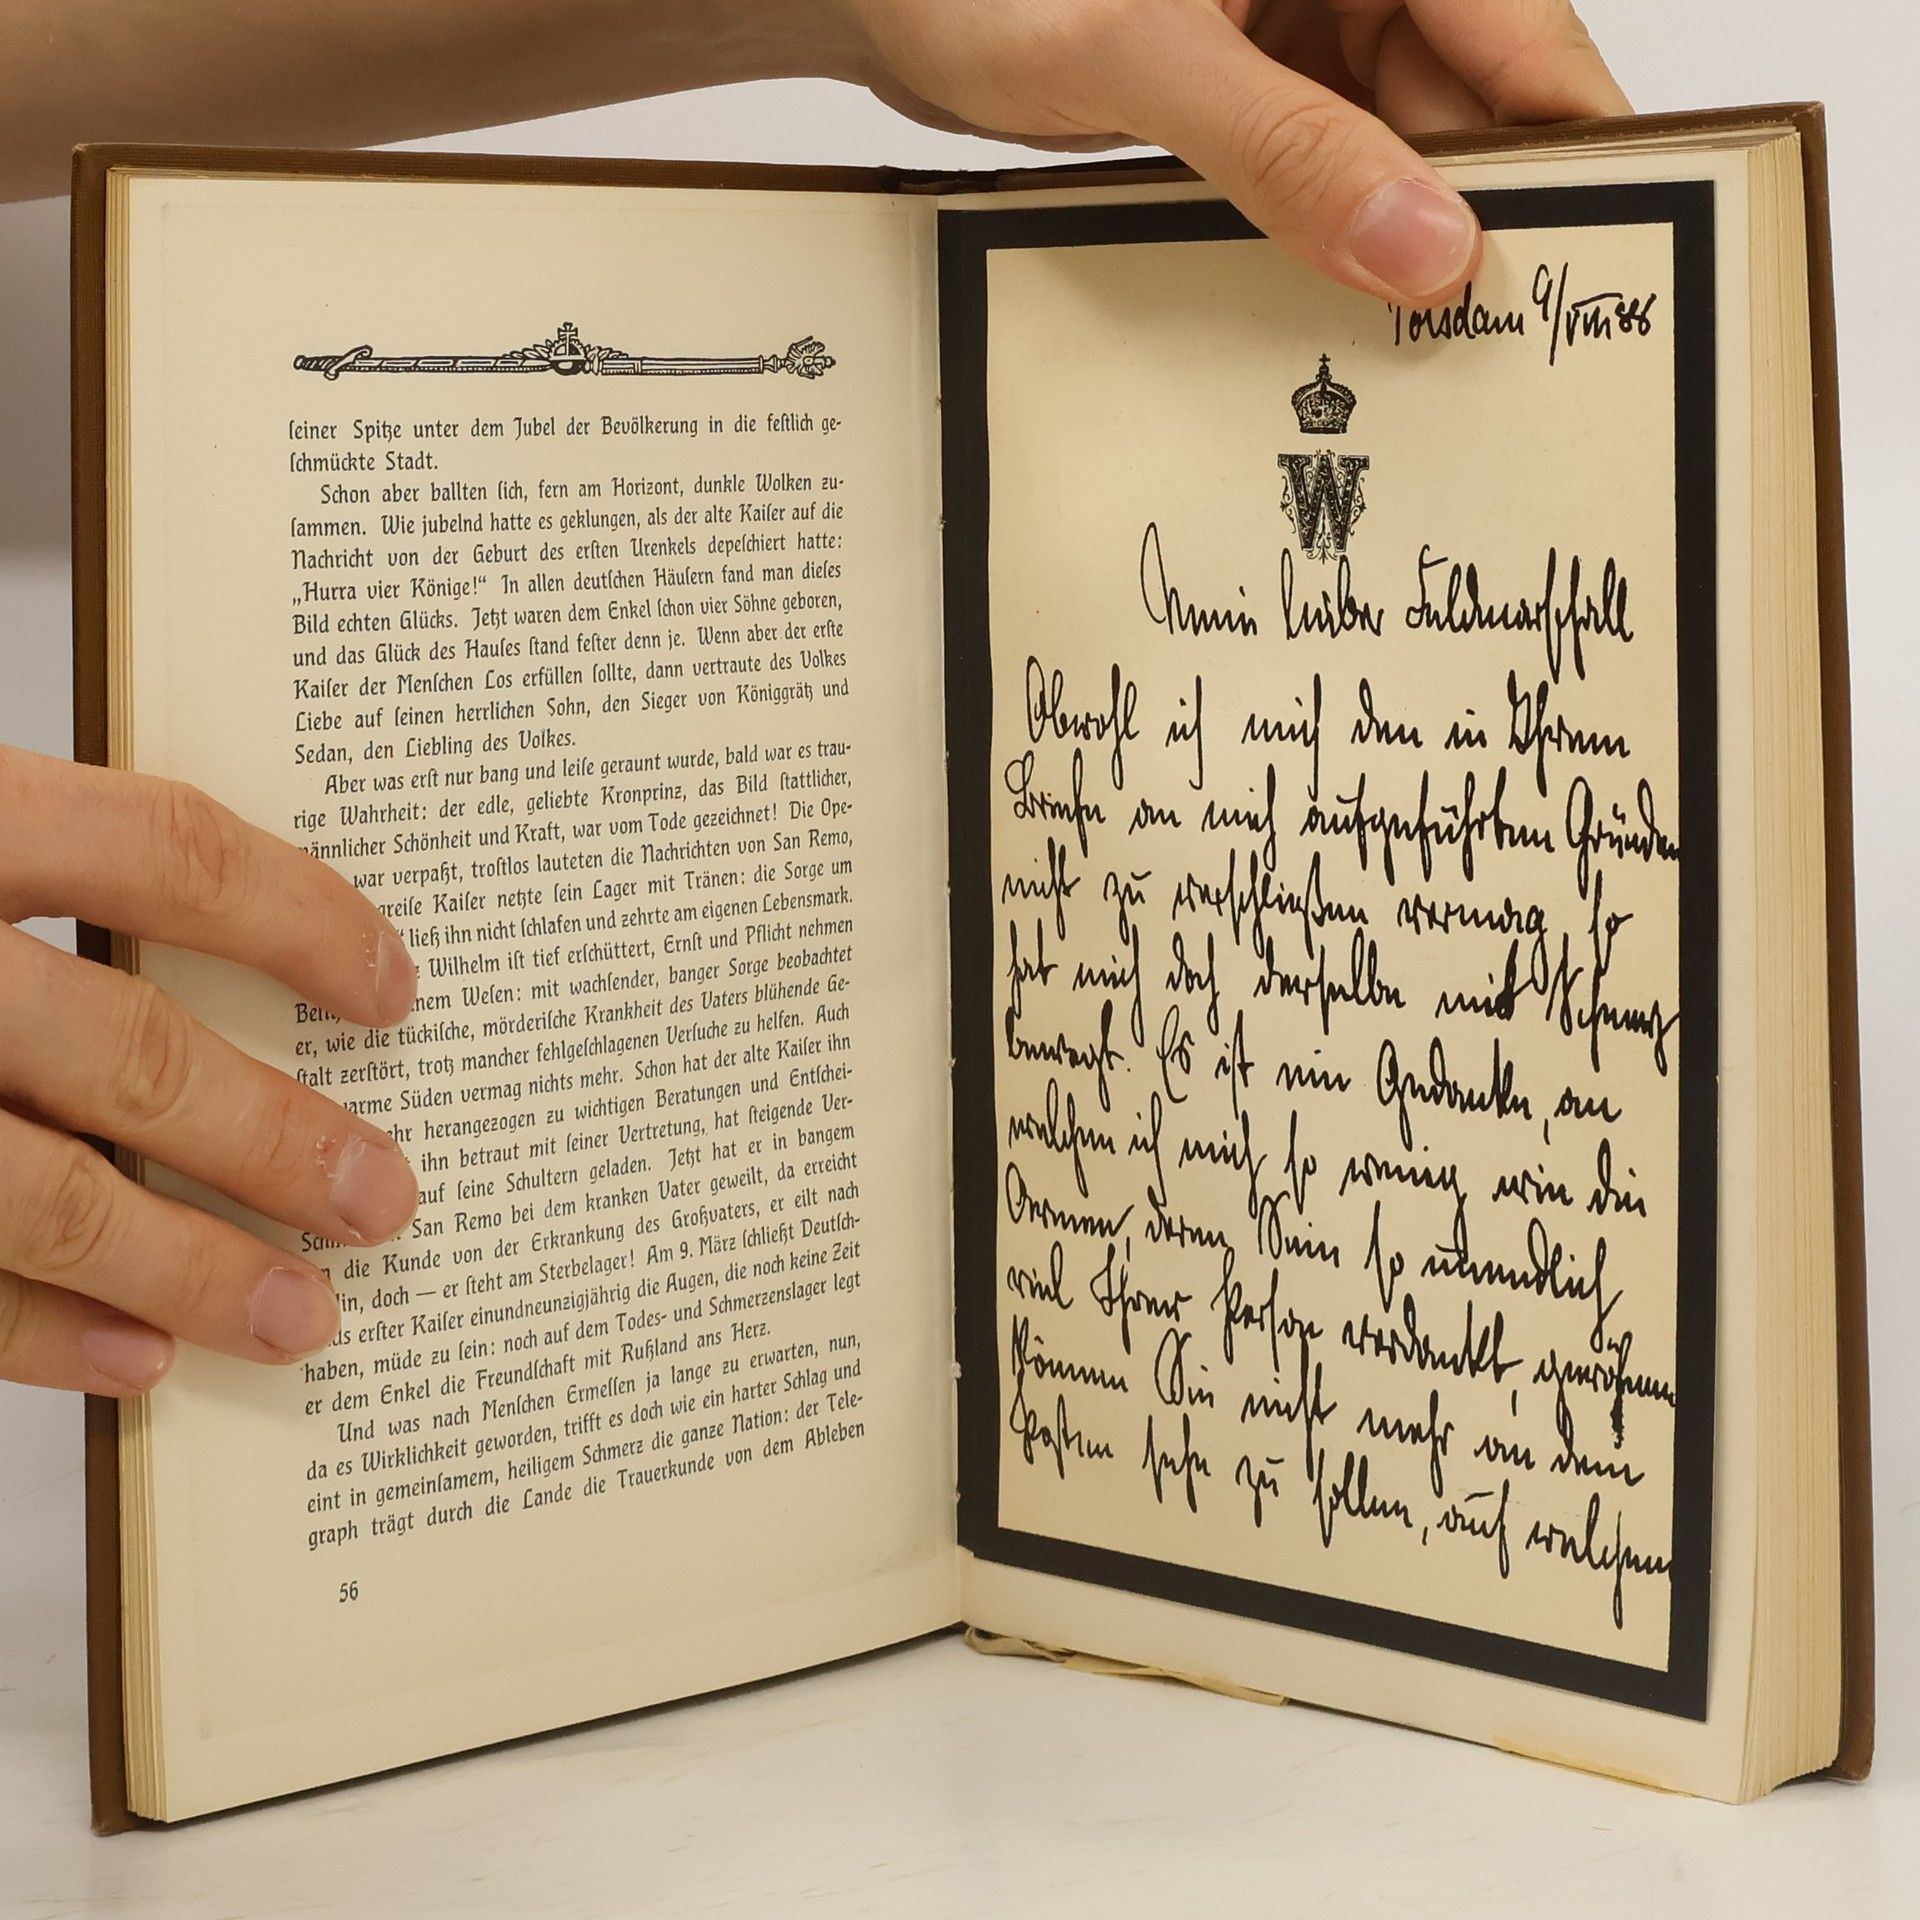 ſeiner Spitze unter dem Jubel der Bevölkerung in die feſtlich ge-
ſchmückte Stadt.
Schon aber ballten ſich, fern am Horizont, dunkle Wolken zu-
ſammen. Wie jubelnd hatte es geklungen, als der alte Kaiſer auf die
Nachricht von der Geburt des erſten Urenkels depeſchiert hatte:
„Hurra vier Könige!“ In allen deutſchen Häuſern fand man dieſes
Bild echten Glücks. Jetzt waren dem Enkel ſchon vier Söhne geboren,
und das Glück des Hauſes ſtand feſter denn je. Wenn aber der erſte
Kaiſer der Menſchen Los erfüllen ſollte, dann vertraute des Volkes
Liebe auf ſeinen herrlichen Sohn, den Sieger von Königgrätz und
Sedan, den Liebling des Volkes.
Aber was erſt nur bang und leiſe geraunt wurde, bald war es trau-
rige Wahrheit: der edle, geliebte Kronprinz, das Bild ſtattlicher,
männlicher Schönheit und Kraft, war vom Tode gezeichnet! Die Ope-
war verpaßt, troſtlos lauteten die Nachrichten von San Remo,
greiſe Kaiſer netzte ſein Lager mit Tränen: die Sorge um
“ ließ ihn nicht ſchlafen und zehrte am eigenen Lebensmark.
Wilhelm iſt tief erſchüttert, Ernſt und Pflicht nehmen
Weſen: mit wachſender, banger Sorge beobachtet
er, wie die tückiſche, mörderiſche Krankheit des Vaters blühende Ge-
ſtalt zerſtört, trotz mancher fehlgeſchlagenen Verſuche zu helfen. Auch
warme Süden vermag nichts mehr. Schon hat der alte Kaiſer ihn
herangezogen zu wichtigen Beratungen und Entſchei-
ihn betraut mit ſeiner Vertretung, hat ſteigende Ver-
auf ſeine Schultern geladen. Jetzt hat er in bangem
San Remo bei dem kranken Vater geweilt, da erreicht
die Kunde von der Erkrankung des Großvaters, er eilt nach
doch — er ſteht am Sterbelager! Am 9. März ſchließt Deutſch-
erſter Kaiſer einundneunzigjährig die Augen, die noch keine Zeit
haben, müde zu ſein: noch auf dem Todes- und Schmerzenslager legt
er dem Enkel die Freundſchaft mit Rußland ans Herz.
Und was nach Menſchen Ermeſſen ja lange zu erwarten, nun,
da es Wirklichkeit geworden, trifft es doch wie ein harter Schlag und
eint in gemeinſamem, heiligem Schmerz die ganze Nation: der Tele-
graph trägt durch die Lande die Trauerkunde von dem Ableben
56
Potsdam 9/VIII 88
W
Mein lieber Feldmarschall
Obwohl ich mich den in Ihrem
Briefe an mich aufgeführten Gründen
nicht zu verschließen vermag, so
hat mich doch derselbe mit Schmerz
bewegt. Es ist ein Gedanke, an
welchen ich mich so wenig wie die
Armee, deren Sein so unendlich
viel Ihrer Person verdankt, gewöhnen
können Sie nicht mehr an dem
Posten sehen zu sollen, auf welchem